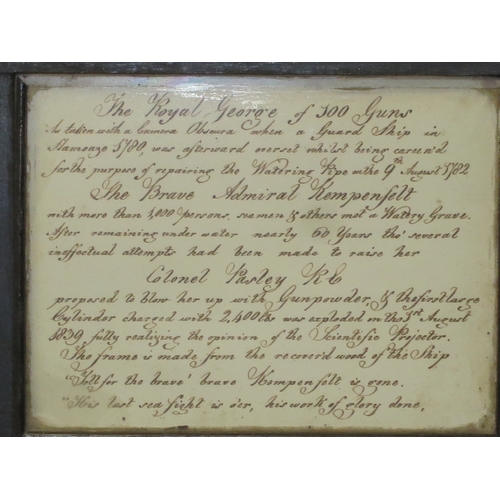 The Royal George of 100 Guns
As taken with a Camera Obscura when a Guard Ship in
Hamoaze 1780, was afterward overset whilst being careen'd
for the purpose of repairing the Wattring Pipe on the 9th August 1782
The Brave Admiral Kempenfelt
with more than 1,000 persons, seamen & others met a Watery Grave.
After remaining under water nearly 60 Years tho' several
inaffectual attempts had been made to raise her
Colonel Pasley R E
proposed to blow her up with Gunpowder, & the first large
Cylinder charged with 2,400 lbs was exploded on the 3rd August
1839, fully realizing the opinion of the Scientific Projector.
The frame is made from the recover'd wood of the Ship
"Toll for the brave' brave Kempenfelt is gone.
"His last sea fight is o'er, his work of glory done,